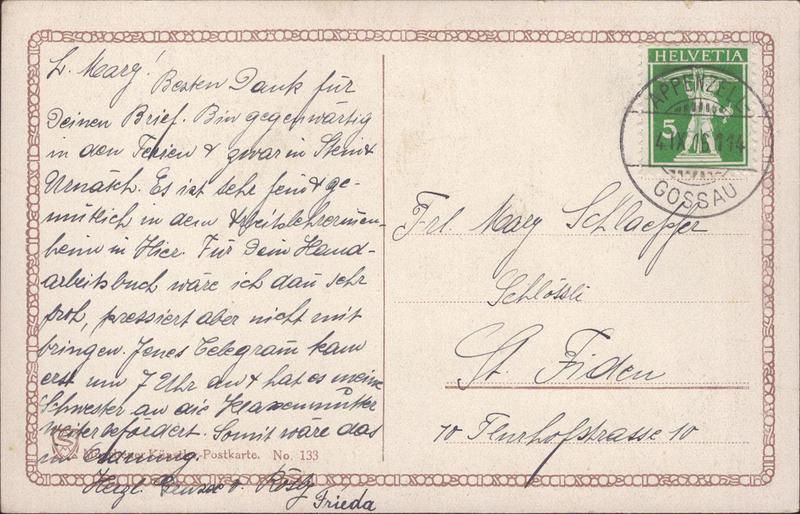 L. Mary!
Besten Dank für
Deinen Brief. Bin gegenwärtig
in den Ferien & zwar in Stein &
Urnäsch. Es ist sehr fein & ge-
mütlich in dem Arbeitslehrerinnen-
heim in Hier. Für Dein Hand-
arbeitsbuch wäre ich dan sehr
froh, pressiert aber nicht mit
bringen. Jenes Telegram kam
erst um 7 Uhr an & hat es meine
Schwester an die
weiterbefördert. Somit wäre das
in Ordnung.
Herzl.
Frieda
Künstler-Postkarte. No. 133
HELVETIA
5
APPENZELL
4.IX.16.
GOSSAU
Frl. Mary Schlaepfer
Schlössli
St. Fiden
10 Flurhofstrasse 10